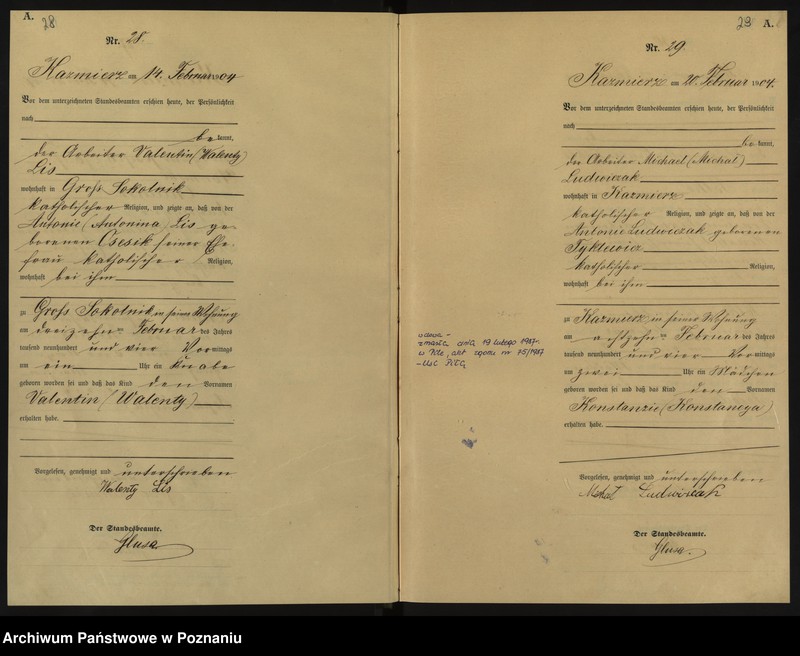 A. 28
Nr. 28.
Kazmierz am 14. Februar 1904
Vor dem unterzeichneten Standesbeamten erschien heute, der Persönlichkeit
nach
be kannt,
der Arbeiter Valentin (Walenty)
Lis
wohnhaft in Groß Sokolnik
katholischer Religion, und zeigte an, daß von der
Antonie (Antonina) Lis ge-
borenen Csesik seiner Ehe-
frau katholischer Religion,
wohnhaft bei ihm
zu Groß Sokolnik in seiner Wohnung
am dreizehn ten Februar des Jahres
tausend neunhundert und vier Vor mittags
um ein Uhr ein Knabe
geboren worden sei und daß das Kind den Vornamen
Valentin (Walenty)
erhalten habe.
Vorgelesen, genehmigt und unterschrieben
Walenty Lis
Der Standesbeamte.
Glusa
29 A.
Nr. 29.
Kazmierz am 20. Februar 1904.
Vor dem unterzeichneten Standesbeamten erschien heute, der Persönlichkeit
nach
be kannt,
der Arbeiter Michael (Michał)
Ludwiczak
wohnhaft in Kazmierz
katholischer Religion, und zeigte an, daß von der
Antonie Ludwiczak geborenen
Fyklewicz
katholischer Religion,
wohnhaft bei ihm
zu Kazmierz in seiner Wohnung
am achtzehn ten Februar des Jahres
tausend neunhundert und vier Vor mittags
um zwei Uhr ein Mädchen
geboren worden sei und daß das Kind den Vornamen
Konstanzie (Konstancya)
erhalten habe.
Vorgelesen, genehmigt und unterschrieben
Michał Ludwiczak
Der Standesbeamte.
Glusa.
zmarła dnia 19 lutego 1987r.
w Pile, akt zgonu nr 75/1987
- USC Piła
Archiwum Państwowe w Poznaniu